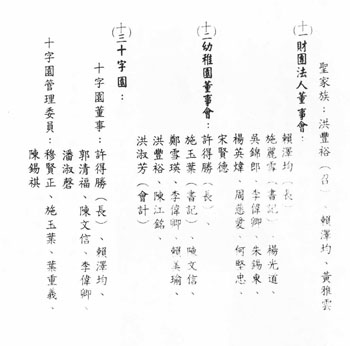 聖家族：洪豐裕（召）、賴澤均、黃雅雲
(十一)財團法人董事會：
賴澤均（長）
施麗雪（書記）、楊光道、
吳錦郎、李偉卿、朱錫東、
楊英煒、周慈愛、何堅忠、
宋賢德
(十二)幼稚園董事會：許得勝（長）、
施玉葉（書記）、陳文信、
鄭雪瑛、李偉卿、賴美瑜、
洪豐裕、陳江銘、
洪淑芳（會計）
(十三)十字園：
十字園董事：許得勝（長）、賴澤均、
郭清福、陳文信、李偉卿、
潘淑馨
十字園管理委員：穆賢正、施玉葉、葉重義、
陳錫祺